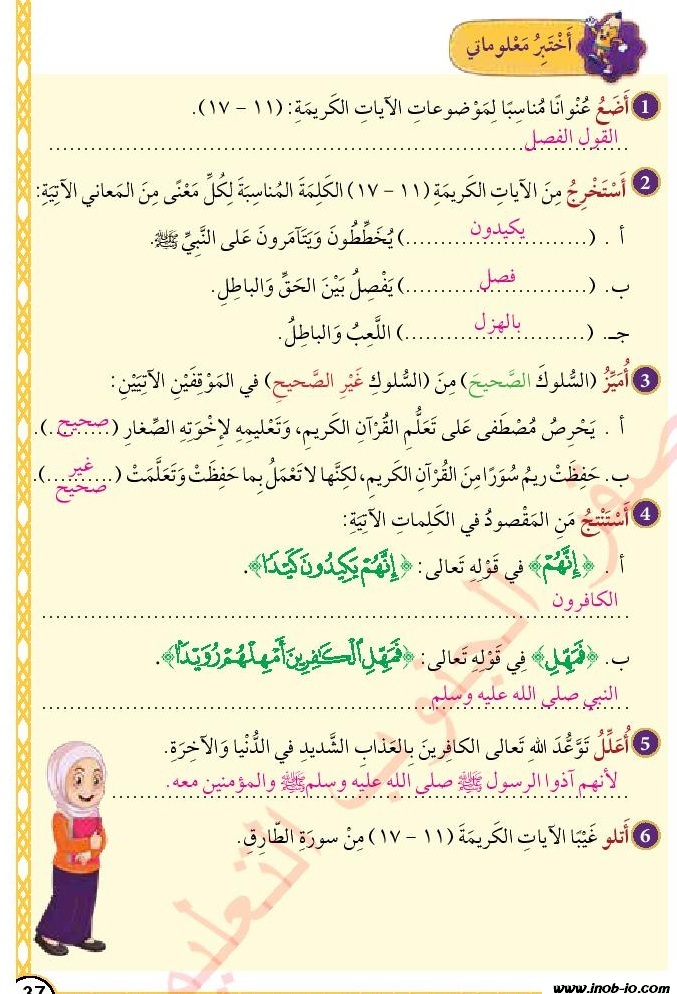 أَخْتَبِرُ مَعْلوماتي
1 أَضَعُ عُنْوانًا مُناسِبًا لِمَوْضوعاتِ الآياتِ الكَريمَةِ: (١١ - ١٧).
القول الفصل
2 أَسْتَخْرِجُ مِنَ الآياتِ الكَريمَةِ (١١ - ١٧) الكَلِمَةَ المُناسِبَةَ لِكُلِّ مَعْنًى مِنَ المَعاني الآتِيَةِ:
أ . (يكيدون) يُخَطِّطُونَ وَيَتَآمَرونَ عَلى النَّبِيِّ ﷺ.
ب. (فصل) يَفْصِلُ بَيْنَ الحَقِّ وَالباطِلِ.
جـ. (بالهزل) اللَّعِبُ وَالباطِلُ.
3 أُمَيِّزُ (السُّلوكَ الصَّحيحَ) مِنَ (السُّلوكِ غَيْرِ الصَّحيحِ) في المَوْقِفَيْنِ الآتِيَيْنِ:
أ . يَحْرِصُ مُصْطَفى عَلى تَعَلُّمِ القُرْآنِ الكَريمِ، وَتَعْليمِهِ لِإخْوَتِهِ الصِّغارِ (صحيح).
ب. حَفِظَتْ ريمُ سُوَرًا مِنَ القُرْآنِ الكَريمِ، لكِنَّها لا تَعْمَلُ بِما حَفِظَتْ وَتَعَلَّمَتْ (غير صحيح).
4 أَسْتَنْتِجُ مَنِ المَقْصودُ في الكَلِماتِ الآتِيَةِ:
أ . ﴿إِنَّهُمْ﴾ في قَوْلِهِ تَعالى: ﴿إِنَّهُمْ يَكِيدُونَ كَيْدًا﴾.
الكافرون
ب. ﴿فَمَهِّلِ﴾ فِي قَوْلِهِ تَعالى: ﴿فَمَهِّلِ الْكَافِرِينَ أَمْهِلْهُمْ رُوَيْدًا﴾.
النبي صلى الله عليه وسلم
5 أُعَلِّلُ تَوَعُّدَ اللهِ تَعالى الكافِرينَ بِالعَذابِ الشَّديدِ في الدُّنْيا وَالآخِرَةِ.
لأنهم آذوا الرسول ﷺ صلى الله عليه وسلم ﷺ والمؤمنين معه.
6 أَتلو غَيْبًا الآياتِ الكَريمَةَ (١١ - ١٧) مِنْ سورَةِ الطّارِقِ.
37
www.inob-jo.com